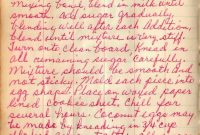 mixing bowl, blend in milk until
smooth. Add sugar gradually,
blending well after each addition,
blend until mixture is very stiff.
Turn onto clean board. Knead in
all remaining sugar carefully.
Mixture should be smooth but
not sticky. Mold each piece into
egg shape. Place on waxed paper
lined cookie sheet. Chill for
several hours. Coconut eggs may
be made by kneading in 3½ cup